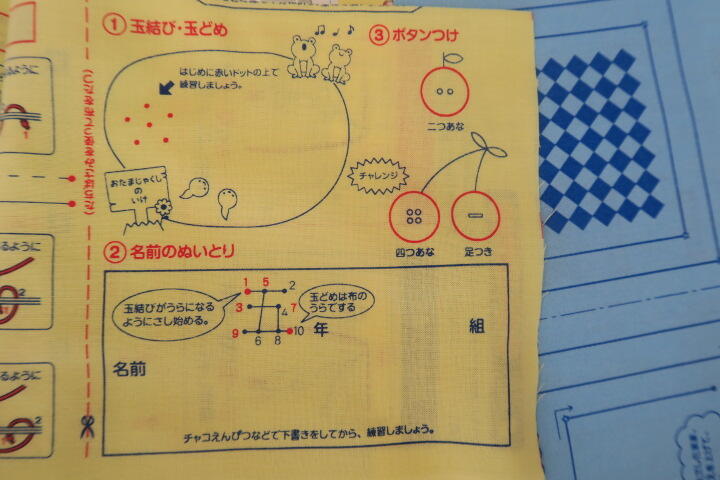 ①玉結び・玉どめ
はじめに赤いドットの上で
練習しましょう。
おたまじゃくし
の
いけ
③ボタンつけ
二つあな
チャレンジ
四つあな
足つき
②名前のぬいとり
玉結びがうらになる
ようにさし始める。
1 5 2
3 4 7
9 6 8 10
玉どめは布の
うらでする
年
組
名前
チャコえんぴつなどで下書きをしてから、練習しましょう。
ように
1
るように
2
るように
2